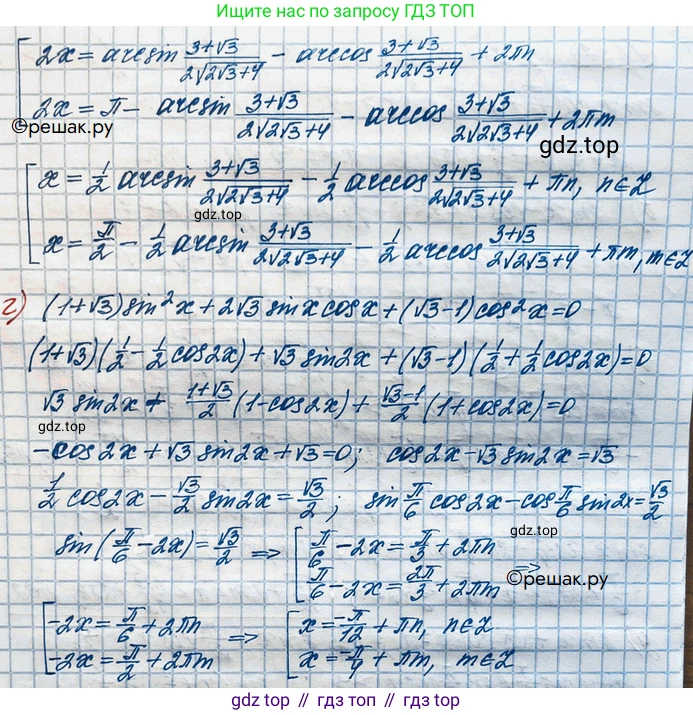 Ищите нас по запросу ГДЗ ТОП
2x = arcsin (3+√3)/(2√(2√3+4)) - arccos (3+√3)/(2√(2√3+4)) + 2πn
2x = π - arcsin (3+√3)/(2√(2√3+4)) - arccos (3+√3)/(2√(2√3+4)) + 2πm
©решак.ру
x = 1/2 arcsin (3+√3)/(2√(2√3+4)) - 1/2 arccos (3+√3)/(2√(2√3+4)) + πn, n∈Z
gdz.top
gdz.top
x = π/2 - 1/2 arcsin (3+√3)/(2√(2√3+4)) - 1/2 arccos (3+√3)/(2√(2√3+4)) + πm, m∈Z
г) (1+√3)sin²x + 2√3 sinx cosx + (√3-1)cos²x = 0
(1+√3)(1/2 - 1/2 cos2x) + √3 sin2x + (√3-1)(1/2 + 1/2 cos2x) = 0
√3 sin2x + (1+√3)/2 (1-cos2x) + (√3-1)/2 (1+cos2x) = 0
gdz.top
-cos2x + √3 sin2x + √3 = 0; cos2x - √3 sin2x = √3
1/2 cos2x - √3/2 sin2x = √3/2; sin π/6 cos2x - cos π/6 sin2x = √3/2
gdz.top
sin(π/6 - 2x) = √3/2 => π/6 - 2x = π/3 + 2πn
π/6 - 2x = 2π/3 + 2πm =>
©решак.ру
-2x = π/6 + 2πn => x = -π/12 + πn, n∈Z
-2x = π/2 + 2πm x = -π/4 + πm, m∈Z
gdz top // гдз топ // gdz.top // гдз.топ